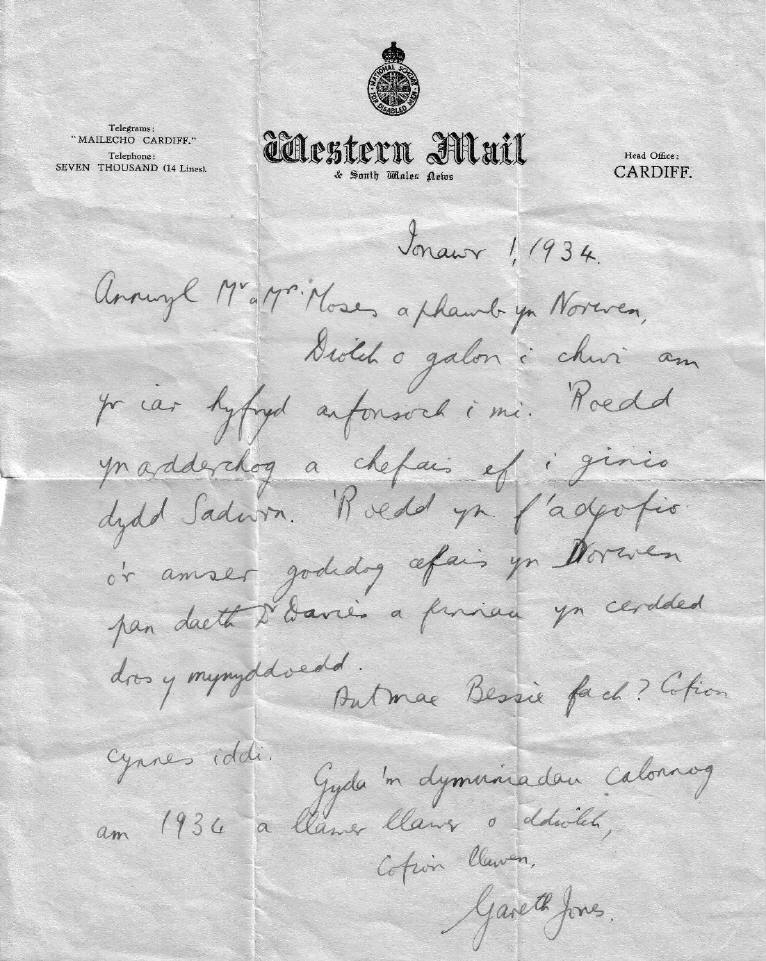 NATIONAL SCHEME
FOR DISABLED MEN
Telegrams:
"MAILECHO CARDIFF."
Telephone:
SEVEN THOUSAND (14 Lines).
Western Mail
& South Wales News
Head Office:
CARDIFF.
Ionawr 1, 1934.
Annwyl Mr a Mrs. Moses a phawb yn Norwen,
Diolch o galon i chwi am
yr iar hyfryd anfonsoch i mi. 'Roedd
yn ardderchog a chefais ef i ginio
dydd Sadwrn. 'Roedd yn f'adgofio
o'r amser godidog cefais yn Norwen
pan daeth Dr Davies a finnau yn cerdded
dros y mynyddoedd.
Sut mae Bessie fach? Cofion
cynnes iddi.
Gyda'm dymuniadau calonnog
am 1934 a llawer llawer o ddiolch,
Cofion llawen,
Gareth Jones.